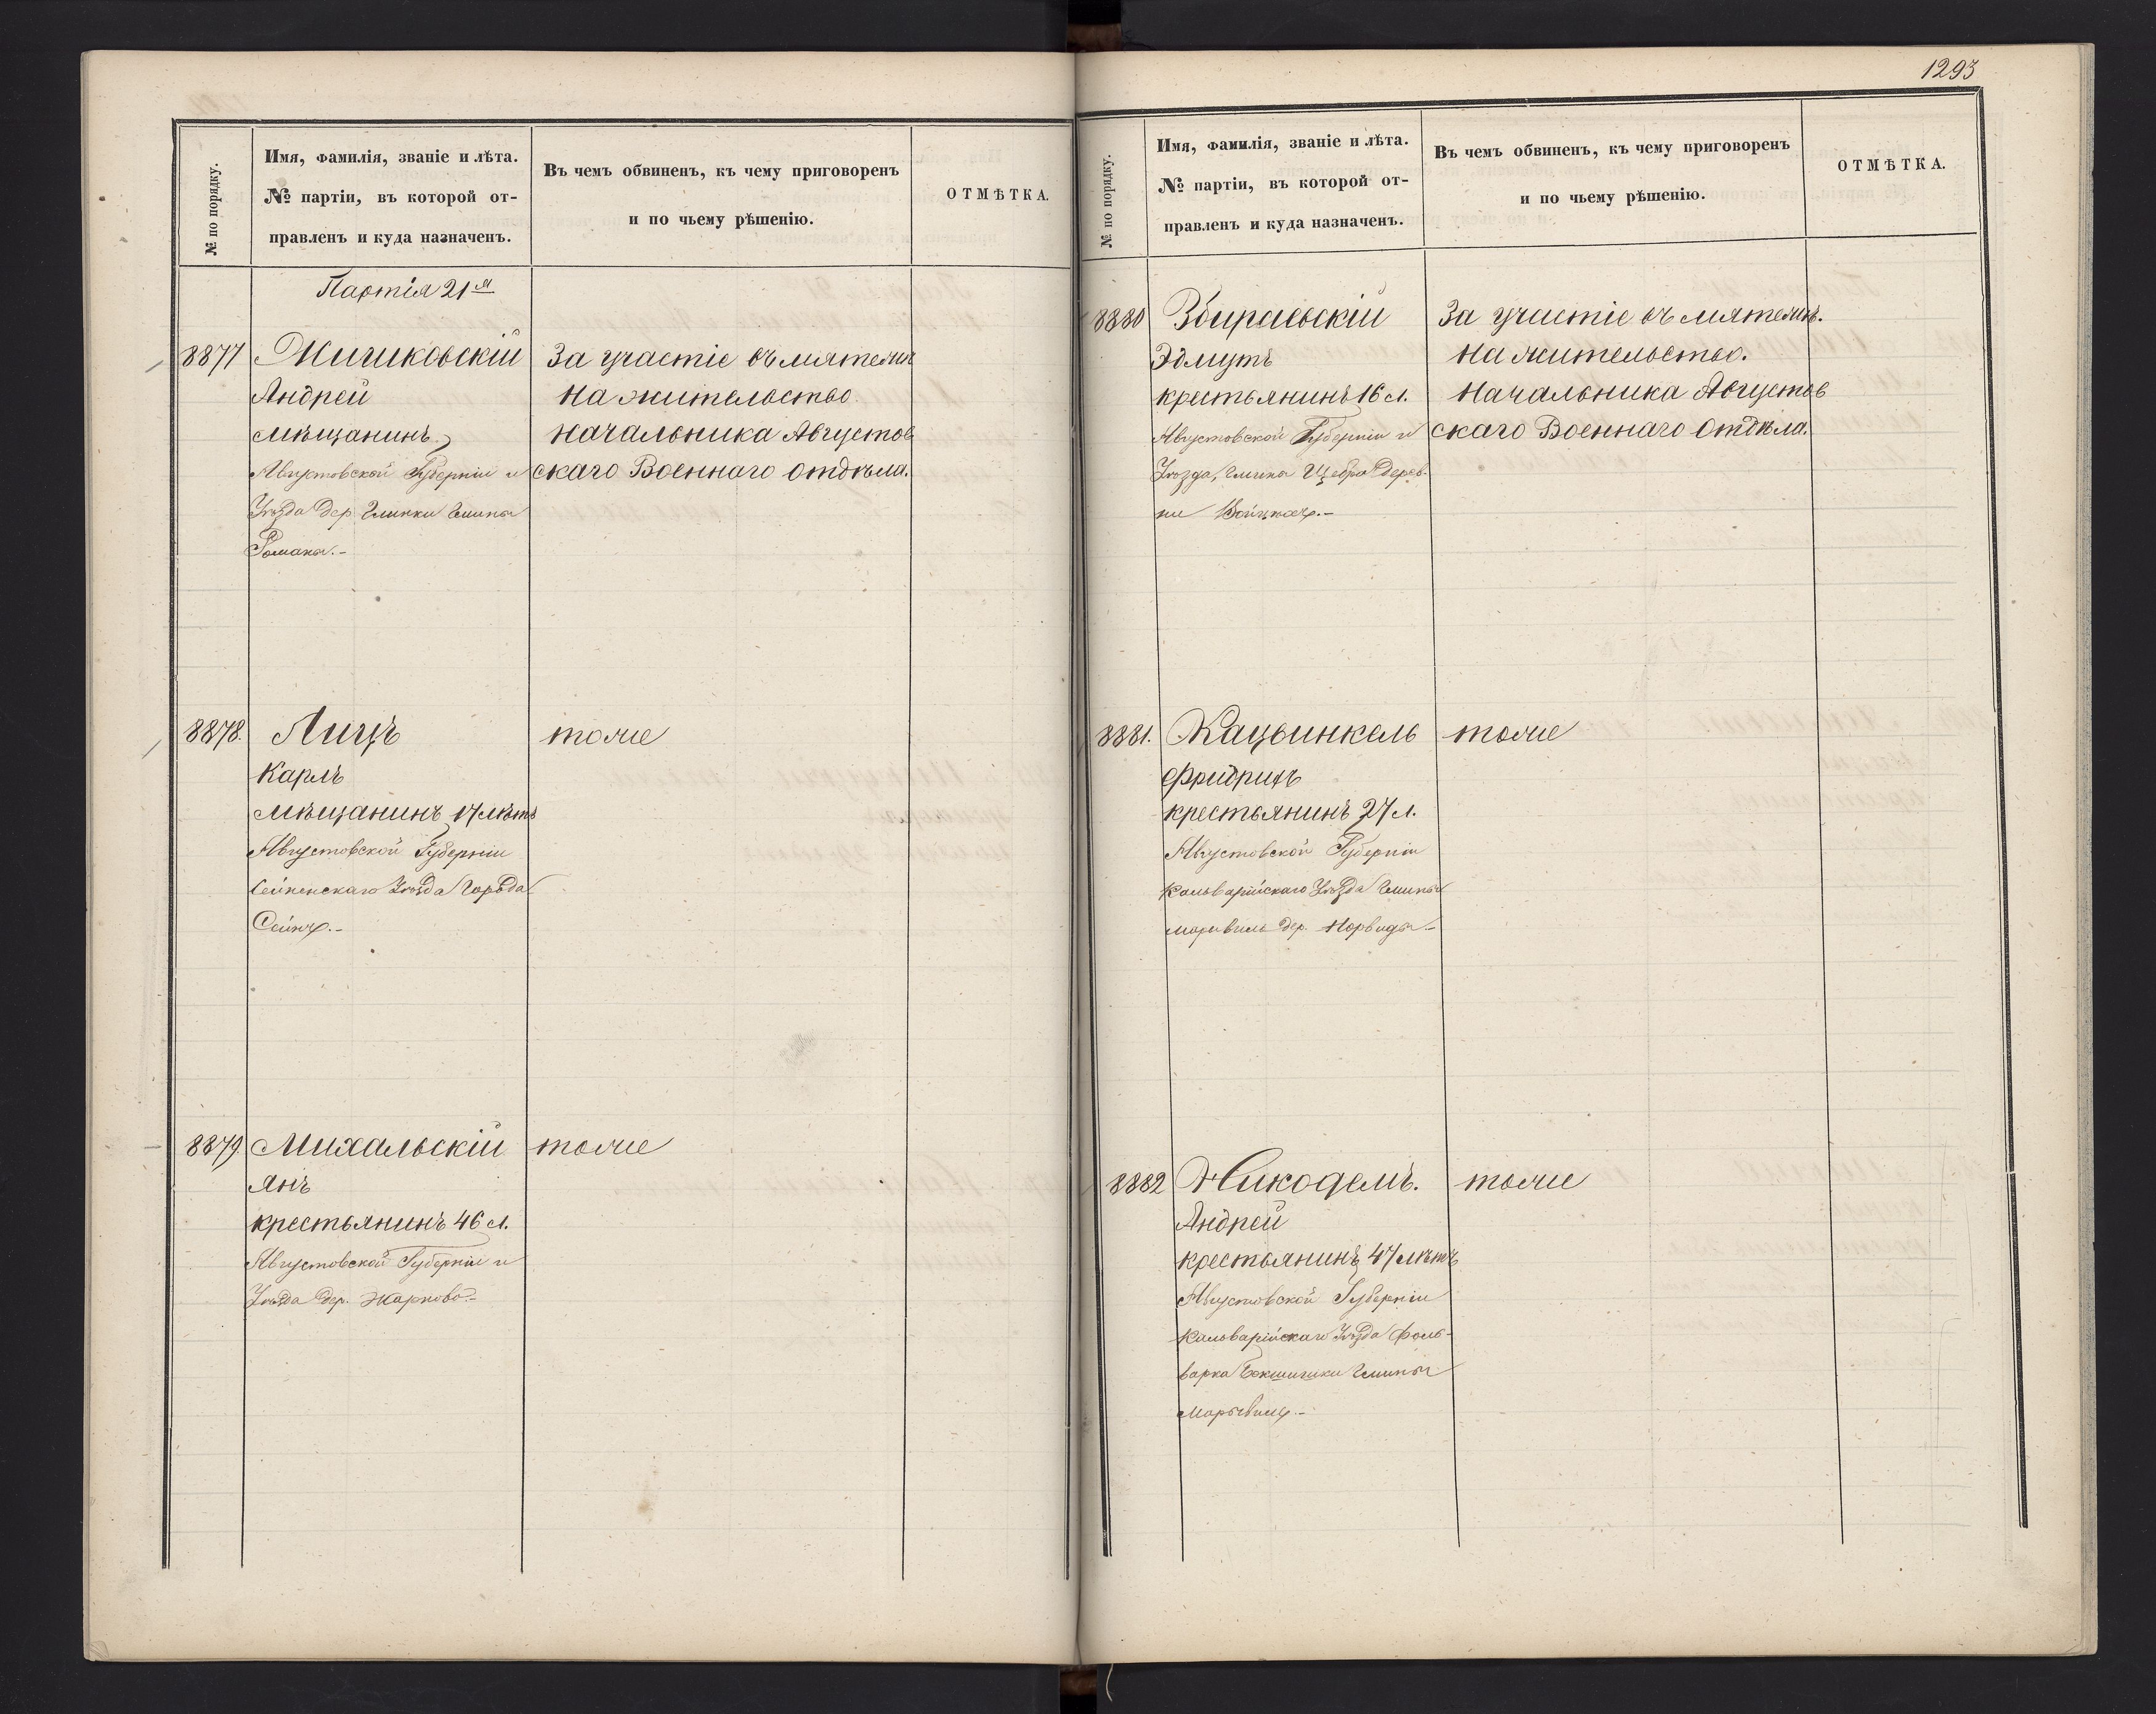 1293
№ по порядку.
Имя, фамилія, званіе и лѣта.
№ партіи, въ которой от-
правленъ и куда назначенъ.
Въ чемъ обвиненъ, къ чему приговоренъ
и по чьему рѣшенію.
ОТМѢТКА.
Партія 21я
8877
Андрей
мѣщанинъ
Августовской Губерніи и
Уѣзда дер. Глинки Гмины
Романы.-
За участіе въ мятежѣ
На жительство
Начальника Августов
скаго Военнаго Отдѣла.
8878.
Лицъ
Карлъ
мѣщанинъ 17 лѣтъ
Августовской Губерніи
Сейненскаго Уѣзда Города
Сейнъ.-
тоже
8879.
Михальскій
Янъ
крестьянинъ 46 л.
Августовской Губерніи и
Уѣзда дер. Жарново.-
тоже
№ по порядку.
Имя, фамилія, званіе и лѣта.
№ партіи, въ которой от-
правленъ и куда назначенъ.
Въ чемъ обвиненъ, къ чему приговоренъ
и по чьему рѣшенію.
ОТМѢТКА.
8880
Збираевскій
Эдмутъ
крестьянинъ 16 л.
Августовской Губерніи и
Уѣзда, Гмина Щебра Дерев-
ни
За участіе въ мятежѣ.
На жительство.
Начальника Августов
скаго Военнаго Отдѣла.
8881.
Кацвинкель
Фридрихъ
крестьянинъ 27 л.
Августовской Губерніи
Кальварійскаго Уѣзда Гмины
дер. Норвиды.-
тоже
8882
Никодемъ.
Андрей
крестьянинъ 47 лѣтъ
Августовской Губерніи
Кальварійскаго Уѣзда Фоль-
варка Гмины
тоже